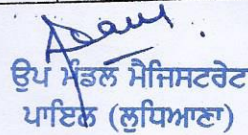 ਉਪ ਮੰਡਲ ਮੈਜਿਸਟਰੇਟ
ਪਾਇਲ (ਲੁਧਿਆਣਾ)